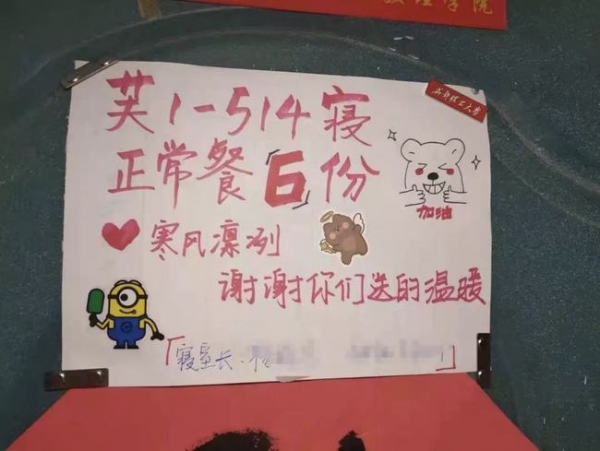 理学院
成都理工大学
芙1-514寝
正常餐「6」份
加油
寒风凛冽
谢谢你们送的温暖
「寝室长:
」